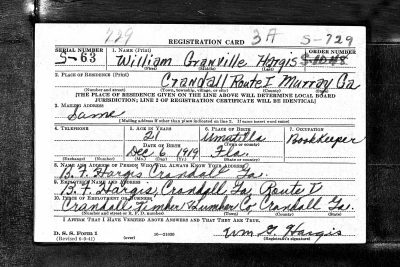 729 3A S-729
REGISTRATION CARD
SERIAL NUMBER 1. NAME (Print) ORDER NUMBER
S-63 William Granville Hargis S-10148
(First) (Middle) (Last)
2. PLACE OF RESIDENCE (Print)
Crandall Route I Murray Ga
(Number and street) (Town, township, village, or city) (County) (State)
[THE PLACE OF RESIDENCE GIVEN ON THE LINE ABOVE WILL DETERMINE LOCAL BOARD
JURISDICTION; LINE 2 OF REGISTRATION CERTIFICATE WILL BE IDENTICAL]
3. MAILING ADDRESS
Same
[Mailing address if other than place indicated on line 2. If same insert word same]
4. TELEPHONE 5. AGE IN YEARS 6. PLACE OF BIRTH 7. OCCUPATION
21 Umatilla Bookkeeper
DATE OF BIRTH (Town or county)
Dec. 6 1919 Fla.
(Exchange) (Number) (Mo.) (Day) (Yr.) (State or country)
8. NAME AND ADDRESS OF PERSON WHO WILL ALWAYS KNOW YOUR ADDRESS
B. F. Hargis Crandall Ga.
9. EMPLOYER'S NAME AND ADDRESS
B. F. Hargis, Crandall, Ga, Route I
10. PLACE OF EMPLOYMENT OR BUSINESS
Crandall Timber & Lumber Co Crandall Ga.
(Number and street or R. F. D. number) (Town) (County) (State)
I AFFIRM THAT I HAVE VERIFIED ABOVE ANSWERS AND THAT THEY ARE TRUE.
D. S. S. Form 1
(Revised 6-9-41) (over) 16—21630 Wm G. Hargis
(Registrant's signature)